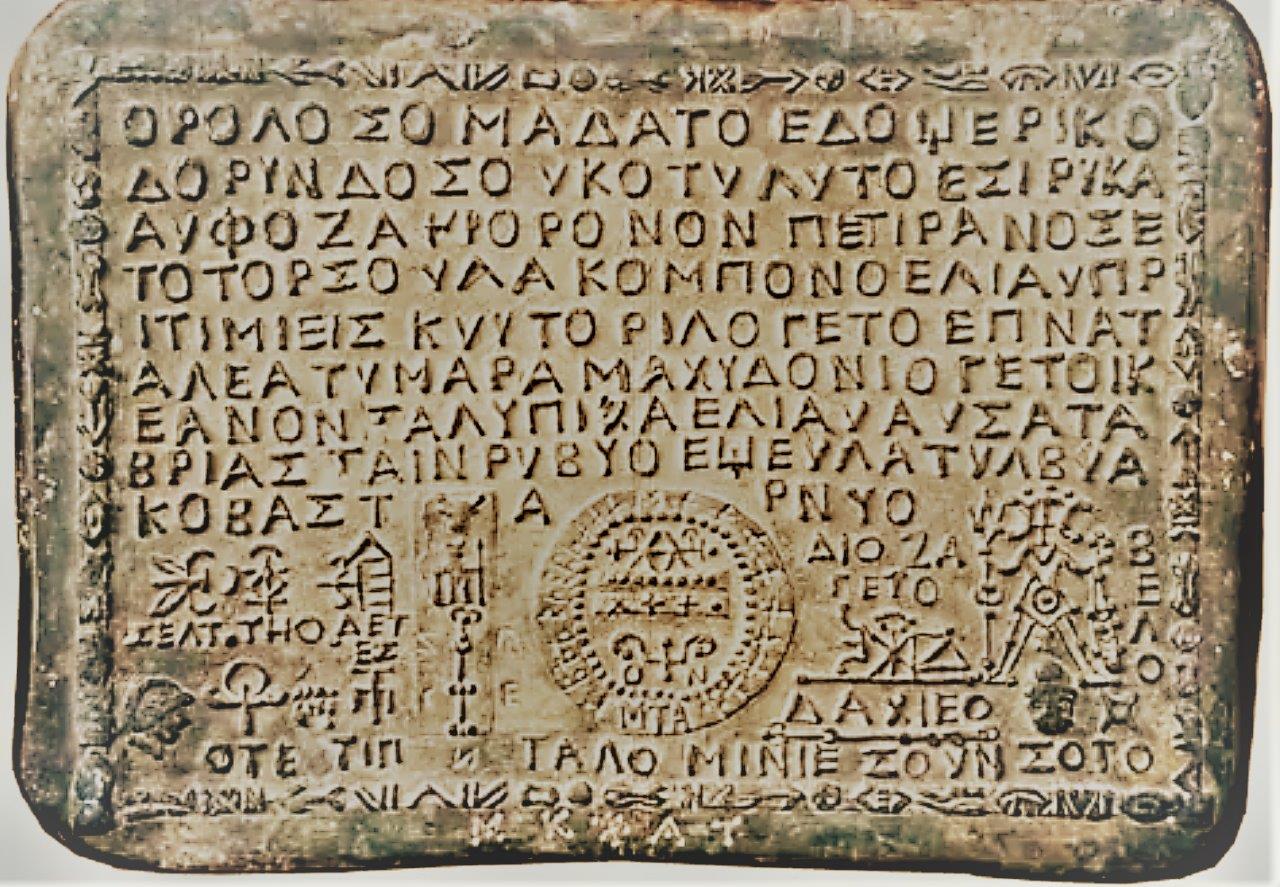 ΟΡΟΛΟ ΣΟ ΜΑΔΑΤΟ ΕΔΟ ΕΡΙΚΟ
ΔΟΡΥΝΔΟΣΟ ΥΚΟΤΥΛΥΤΟ ΕΣΙΡΥΚΑ
ΑΥΦΟΖΑ ΟΡΟΝΟΝ ΠΕΤΙΡΑΝΟΞΕ
ΤΟΤΟΡΣΟ ΥΛΑ ΚΟΜΠΟΝΟΕΛΙΑΥΠΡ
ΙΤΙΜΙΕΙΣ ΚΥΥΤΟ ΡΙΛΟΓΕΤΟ ΕΠΝΑΤ
ΑΛΕΑΤΥΜΑΡΑ ΜΑΧΥΔΟΝΙΟ ΓΕΤΟΙΚ
ΕΑΝΟΝ ΤΑΛΥΠΙΧΑΕΛΙΑΥΑΥΣΑΤΑ
ΒΡΙΑΣ ΤΑΙΝΡΥΒΥΟ ΕΥΛΑΤΥΛΒΥΑ
ΚΟΒΑΣΤ Α ΡΝΥΟ
ΔΙΟ ΖΑ
ΓΕΤΟ
ΒΕΛΟ
ΑΕΓ
ΕΣ
ΜΤΑ
ΔΑΧΙΕΟ
ΟΤΕ ΤΙΠ Ν ΤΑΛΟ ΜΙΝΙΕ ΣΟΥΝ ΣΟΤΟ